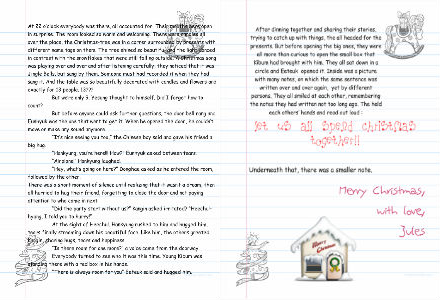 At 22 o'clock everybody was there, all accounted for. Their mouths were open
in surprise. The room looked so warm and welcoming. There were candles all
over the place, the Christmas-tree was in a corner surrounded by presents with
different name tags on them. The tree shined so beautifully and the light glowed
in contrast with the snowflakes that were still falling outside. A Christmas song
was playing over and over and after listening carefully, they noticed that it was
Jingle Bells, but sung by them. Someone must had recorded it when they had
sung it. And the table was so beautifully decorated with candles and flowers and
exactly for 13 people. 13??
But we're only 5, Yesung thought to himself, did I forget how to
count?
But before anyone could ask further questions, the door bell rang and
Eunhyuk was the one that went to get it. When he opened the door, he couldn't
move or make any sound anymore.
"It's nice seeing you too," the Chinese boy said and gave his friend a
big hug.
"Hankyung, you're here!! How?" Eunhyuk asked between tears.
"Airplane." Hankyung laughed.
"Hey, what's going on here?" Donghae asked as he entered the room,
followed by the other.
There was a short moment of silence until realizing that it wasn't a dream, then
all hurried to hug their friend, forgetting to close the door and not paying
attention to who came in next.
"Did the party start without us?" Kangin asked irritated? "Heechul-
hyung, I told you to hurry!"
At the sight of Heechul, Hankyung rushed to him and hugged him,
tears freely streaming down his beautiful face. Like him, the others greeted
Kangin, sharing hugs, tears and happiness.
"Is there room for one more?" a voice came from the doorway.
Everybody turned to see who it was this time. Young Kibum was
standing there with a red box in his hands.
"There is always room for you." Eeteuk said and hugged him.
After dinning together and sharing their stories,
trying to catch up with things, they all headed for the
presents. But before opening the big ones, they were
all more than curious to open the small box that
Kibum had brought with him. They all sat down in a
circle and Eeteuk opened it. Inside was a picture
with many notes, on which the same sentence was
written over and over again, yet by different
persons. They all smiled at each other, remembering
the notes they had written not too long ago. They held
each others' hands and read out loud:
let us all spend christmas
together!!
Underneath that, there was a smaller note.
Merry Christmas,
with love,
Jules